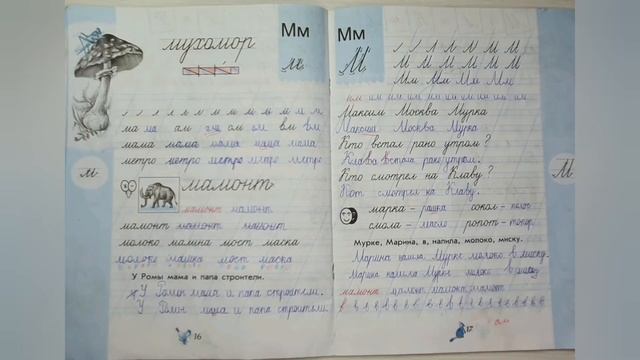 мухомор
Мм
м
ма ма ам ам ом ом им им
мама мама мама мама мама
метро метро метро метро метро
м
мамонт
мамонт мамонт
мамонт мамонт мамонт
молоко малина мост маска
молоко малина мост маска
У Ромы мама и папа строители.
У Ромы мама и папа строители.
У Ромы мама и папа строители.
16
Мм
М
М М М М М М М
Мм Мм Мм Мм
им им им им им им им им им им
Максим Москва Мурка
Максим Москва Мурка
Кто встал рано утром?
Клава встала рано утром.
Кто смотрел на Клаву?
Кот смотрел на Клаву.
М
марка – рамка сокол – колос
смола – масло ропот – топор
Мурке, Марина, в, налила, молоко, миску.
Марина налила Мурке молоко в миску.
Марина налила Мурке молоко в миску
мамонт мамонт мамонт мамонт
в в в в в в в в в в в в в в в в
17